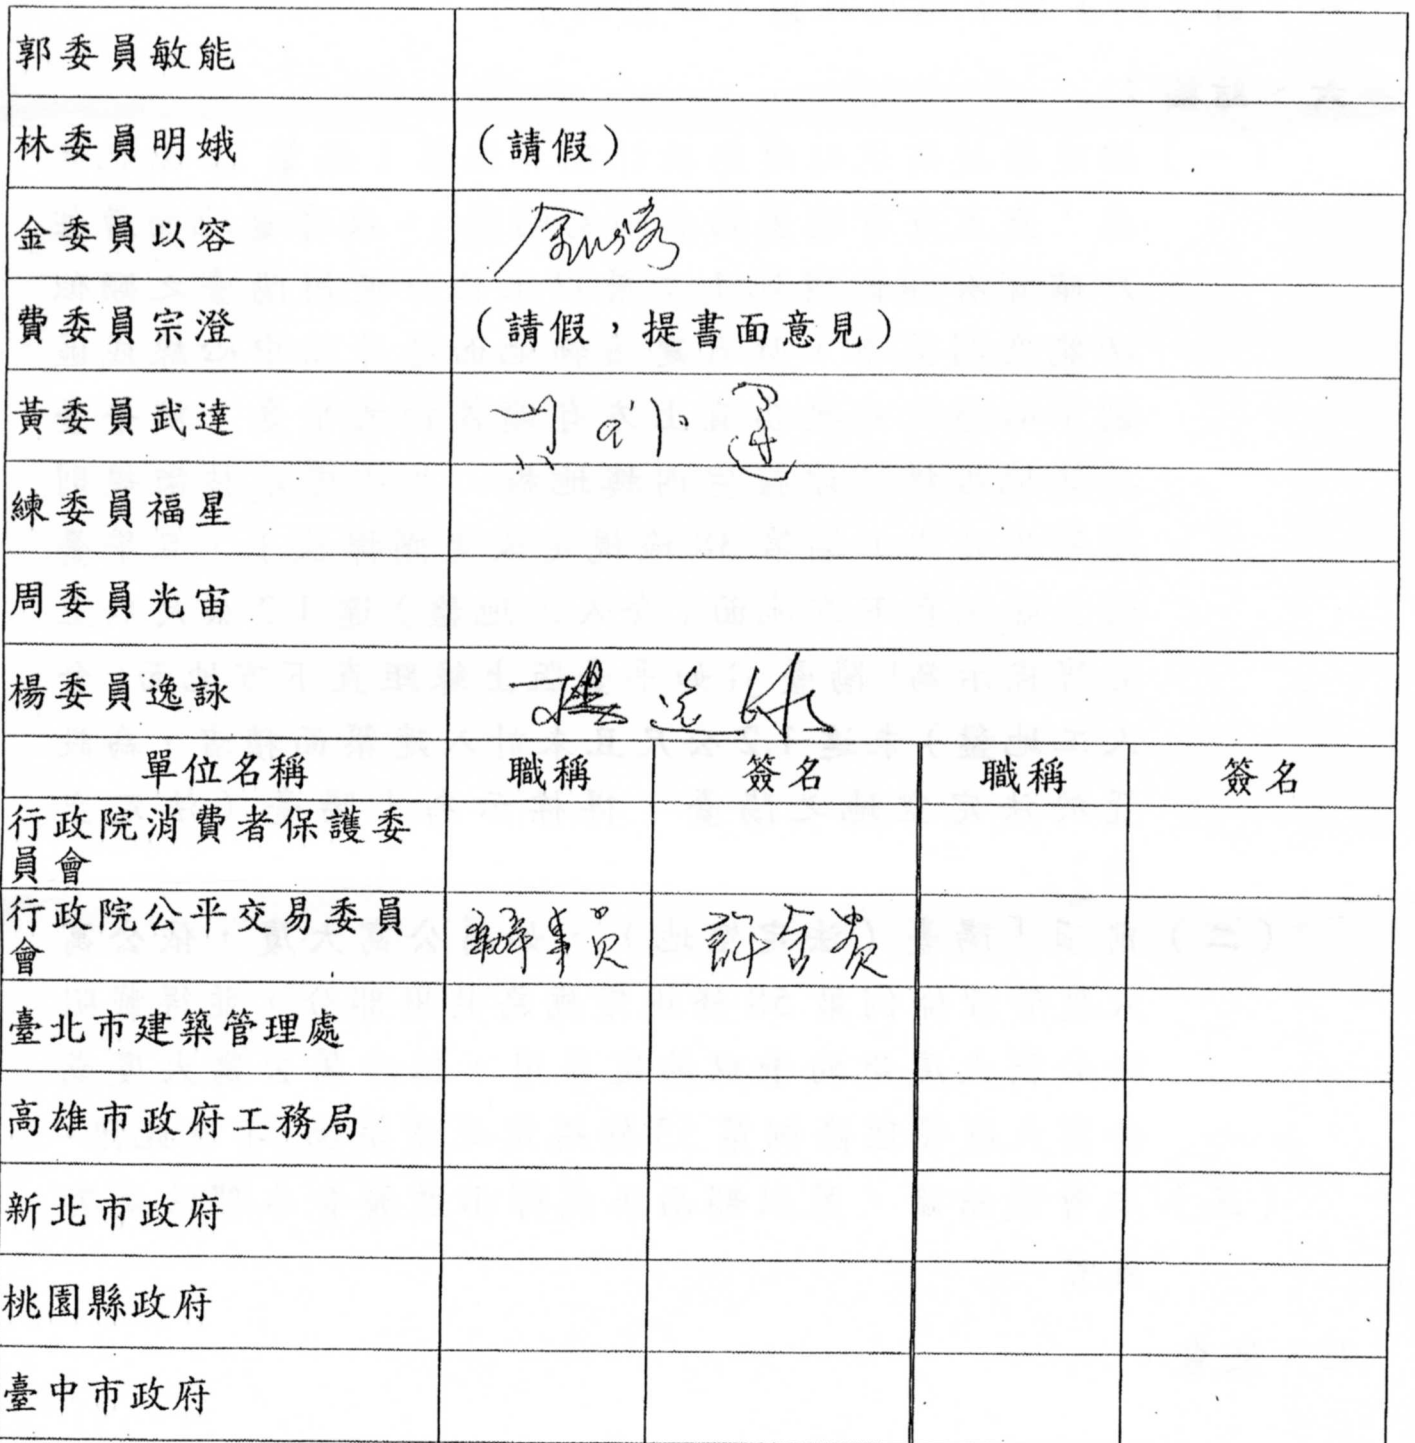 郭委員敏能
林委員明娥 （請假）
金委員以容 金以容
費委員宗澄 （請假，提書面意見）
黃委員武達
練委員福星
周委員光宙
楊委員逸詠 楊逸詠
單位名稱 職稱 簽名 職稱 簽名
行政院消費者保護委
員會
行政院公平交易委員
會 辦事員
臺北市建築管理處
高雄市政府工務局
新北市政府
桃園縣政府
臺中市政府